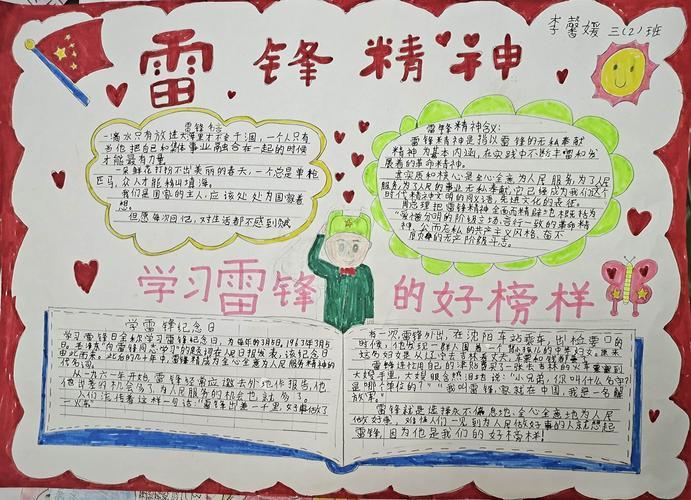 李馨媛 三(2)班
雷锋精神
雷锋名言
一滴水只有放进大海里才不会干涸,一个人只有
当他把自己和集体事业融合在一起的时候
才能最有力量
一朵鲜花打扮不出美丽的春天,一个人总是单枪
匹马,众人才能移山填海。
我们是国家的主人,应该处处为国家着
想。
但愿每次回忆,对生活都不感到
雷锋精神含义:
雷锋精神是指以雷锋的无私奉献
精神为基本内涵,在实践中不断丰富和发
展着的革命精神。
其实质和核心是全心全意为人民服务,为了人
民的事业无私奉献,它已经成为我们这个
时代精神文明的同义语,先进文化的表征。
周总理把雷锋精神全面而精辟地概括为
“爱憎分明的阶级立场、言行一致的革命精
神、公而无私的共产主义风格、奋不
顾身的无产阶级斗志。
学习雷锋的好榜样
学雷锋纪念日
学习雷锋日全称学习雷锋纪念日,为每年的3月5日,1963年3月5
日,毛泽东“向雷锋同志学习”的题词在人民日报发表,该纪念日
由此而来,此后的几十年中,雷锋精神成为全心全意为人民服务精神的
代名词。
从一九六一年开始,雷锋经常应邀去外地作报告,他
出差的机会多了,为人民服务的机会也就多了。
人们流传着这样一句话:“雷锋出差一千里,好事做了
一火车”
有一次雷锋外出,在沈阳车站乘车,出检票口的
时候,他发现一群人围着一个背着小孩的中年妇女。原来
雷锋就是这样永不偏息地、全心全意地为人民
做好事,难怪人们一见到为人民做好事的人就想起
雷锋,因为他是我们的好榜样!